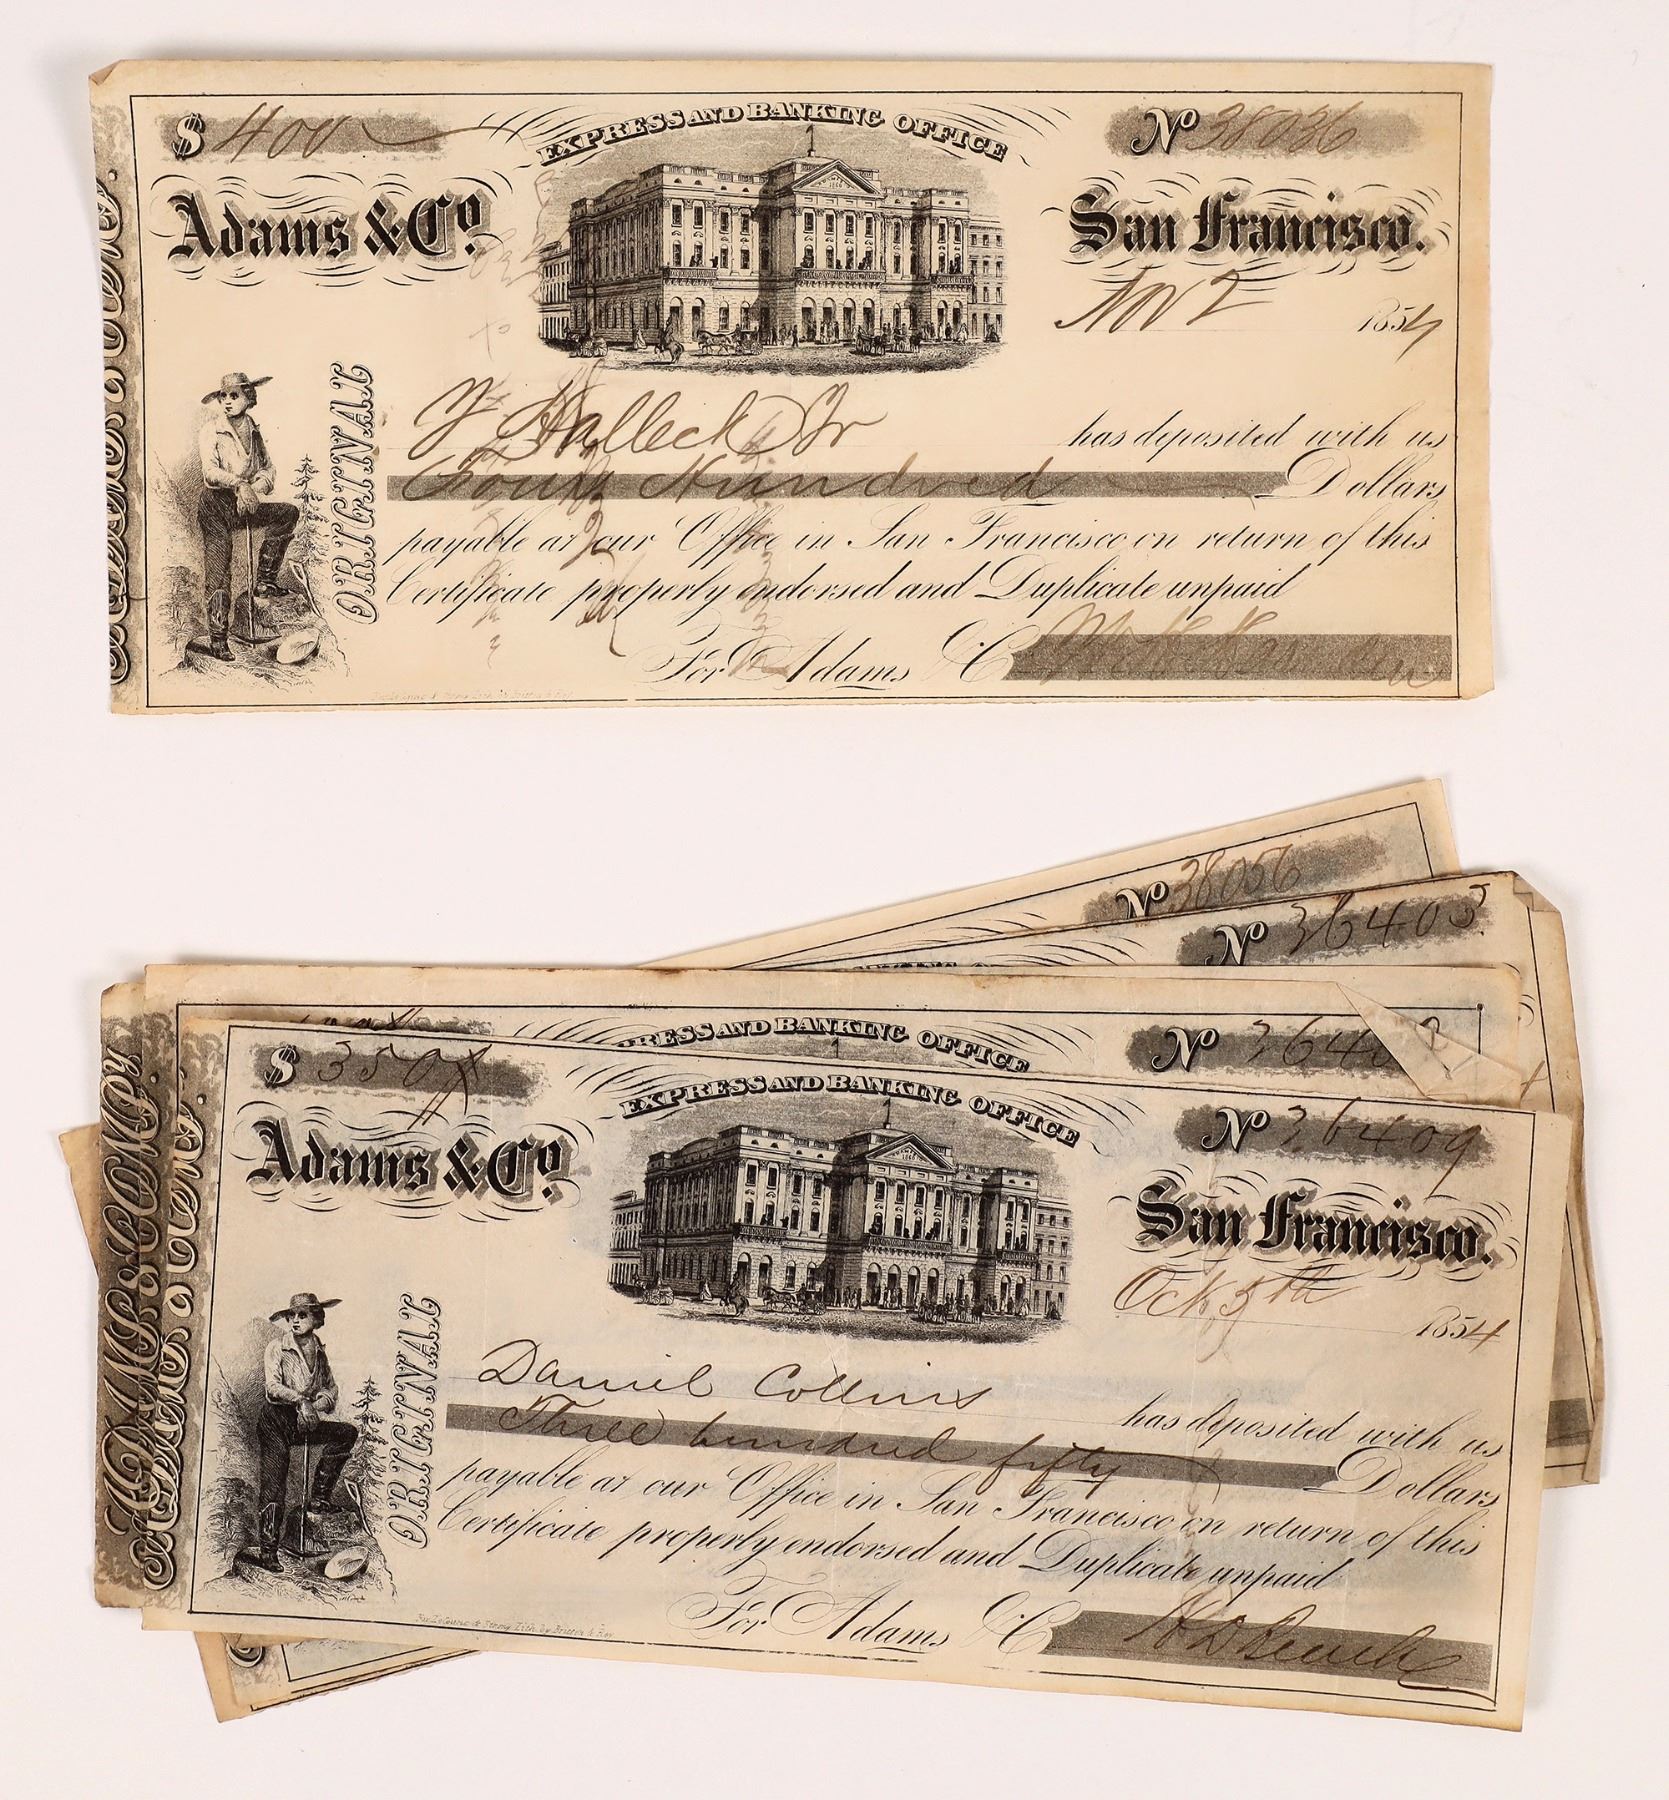 $ 400
EXPRESS AND BANKING OFFICE
No 38036
Adams & Co.
San Francisco.
Nov 2 1854
ORIGINAL
Y Halleck Jr has deposited with us
Four Hundred Dollars
payable at our Office in San Francisco on return of this
Certificate properly endorsed and Duplicate unpaid
For Adams & C
No 38056
No 36405
BANKING OFFICE
RESS AND BANKING OFFICE
No 3640
ADAMS & COMPY
$ 350
EXPRESS AND BANKING OFFICE
No 36409
Adams & Co.
San Francisco.
Oct 5th 1854
ORIGINAL
Daniel Collins has deposited with us
Three hundred fifty Dollars
payable at our Office in San Francisco on return of this
Certificate properly endorsed and Duplicate unpaid
For Adams & C
Lith. by Britton & Rey